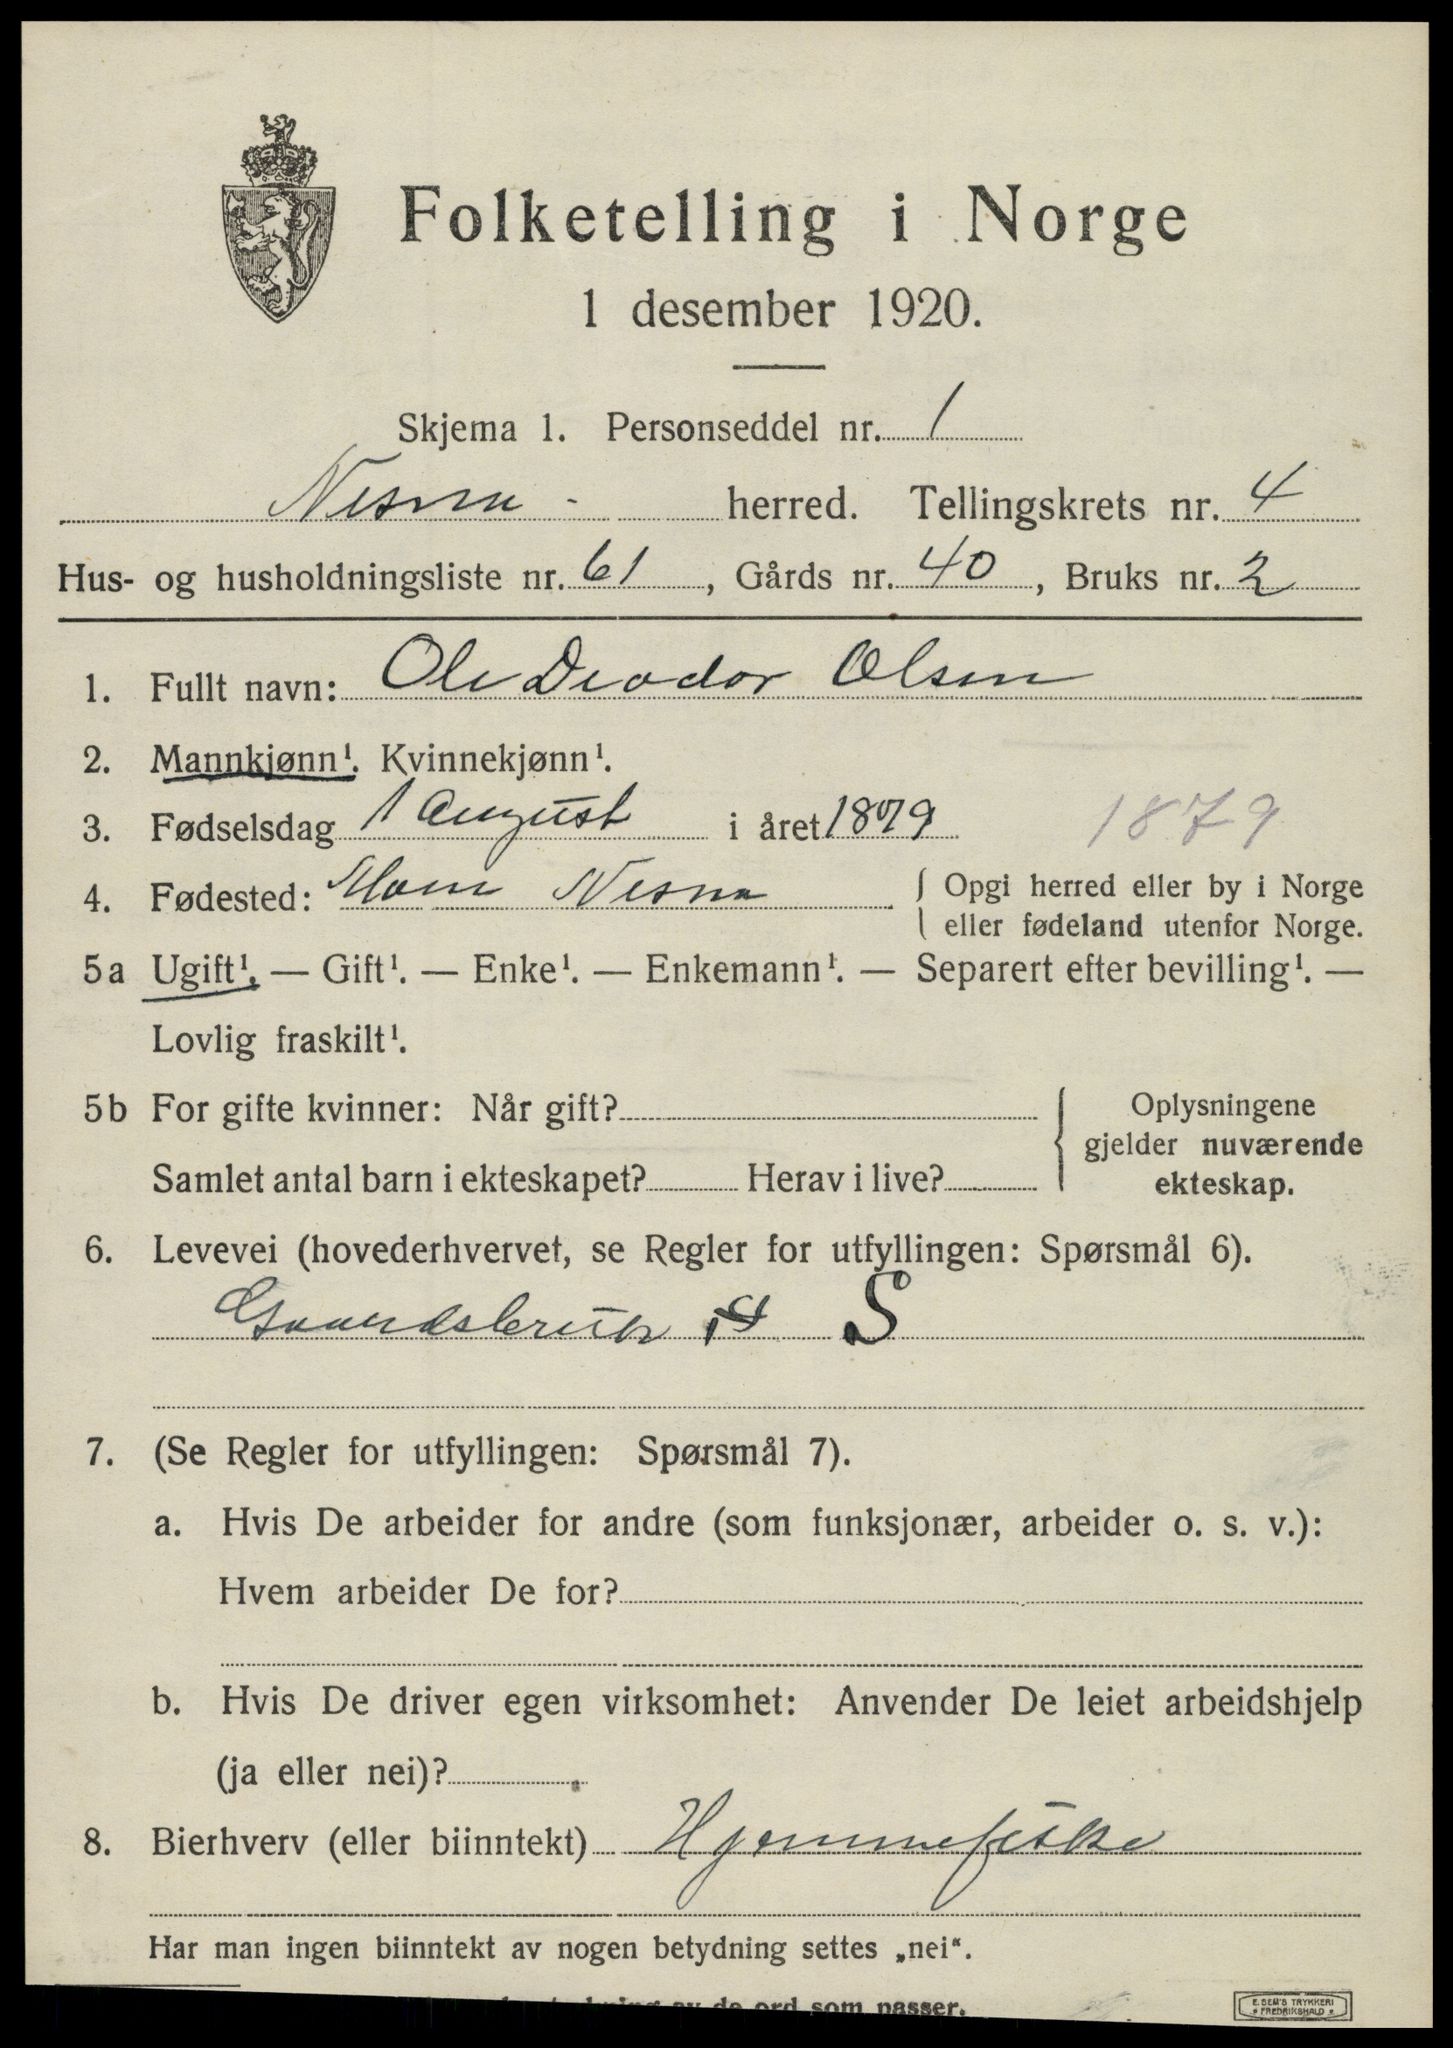 Folketelling i Norge
1 desember 1920.
Skjema 1. Personseddel nr. 1
Nesna herred. Tellingskrets nr. 4
Hus- og husholdningsliste nr. 61, Gårds nr. 40, Bruks nr. 2
1. Fullt navn: Ole Deodor Olsen
2. Mannkjønn¹. Kvinnekjønn¹.
3. Fødselsdag 1 August i året 1879 1879
4. Fødested: Nesna { Opgi herred eller by i Norge
eller fødeland utenfor Norge.
5a Ugift¹. — Gift¹. — Enke¹. — Enkemann¹. — Separert efter bevilling¹. —
Lovlig fraskilt¹.
5b For gifte kvinner: Når gift? { Oplysningene
gjelder nuværende
Samlet antal barn i ekteskapet? Herav i live? ekteskap.
6. Levevei (hovederhvervet, se Regler for utfyllingen: Spørsmål 6).
Gaardsbruk S
7. (Se Regler for utfyllingen: Spørsmål 7).
a. Hvis De arbeider for andre (som funksjonær, arbeider o. s. v.):
Hvem arbeider De for?
b. Hvis De driver egen virksomhet: Anvender De leiet arbeidshjelp
(ja eller nei)?
8. Bierhverv (eller biinntekt) Hjemmefiske
Har man ingen biinntekt av nogen betydning settes „nei“.
av de ord som passer.
E. SEM'S TRYKKERI
FREDRIKSHALD